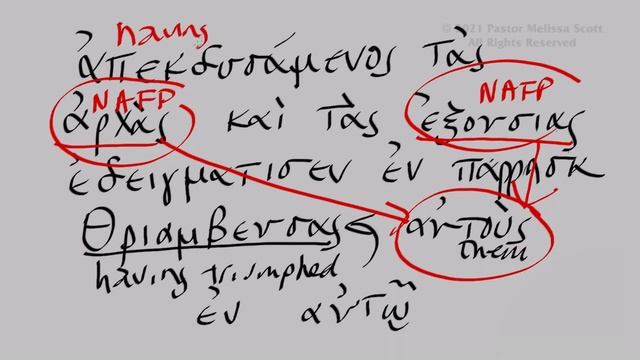 © 2021 Pastor Melissa Scott
All Rights Reserved
having
ἀπεκδυσάμενος τὰς
NAFP NAFP
ἀρχὰς καὶ τὰς ἐξουσιας
ἐδειγματισεν ἐν παρρησια
Θριαμβευσας αὐτοὺς
having triumphed them
ἐν αὐτῷ